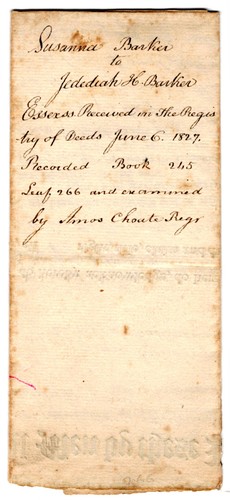 Susanna Barker
to
Jedediah H. Barker
Essex ss Received in the Regis
try of Deeds June 6. 1827.
Recorded Book 245
Leaf 266 and examined
by Amos Choate Regr